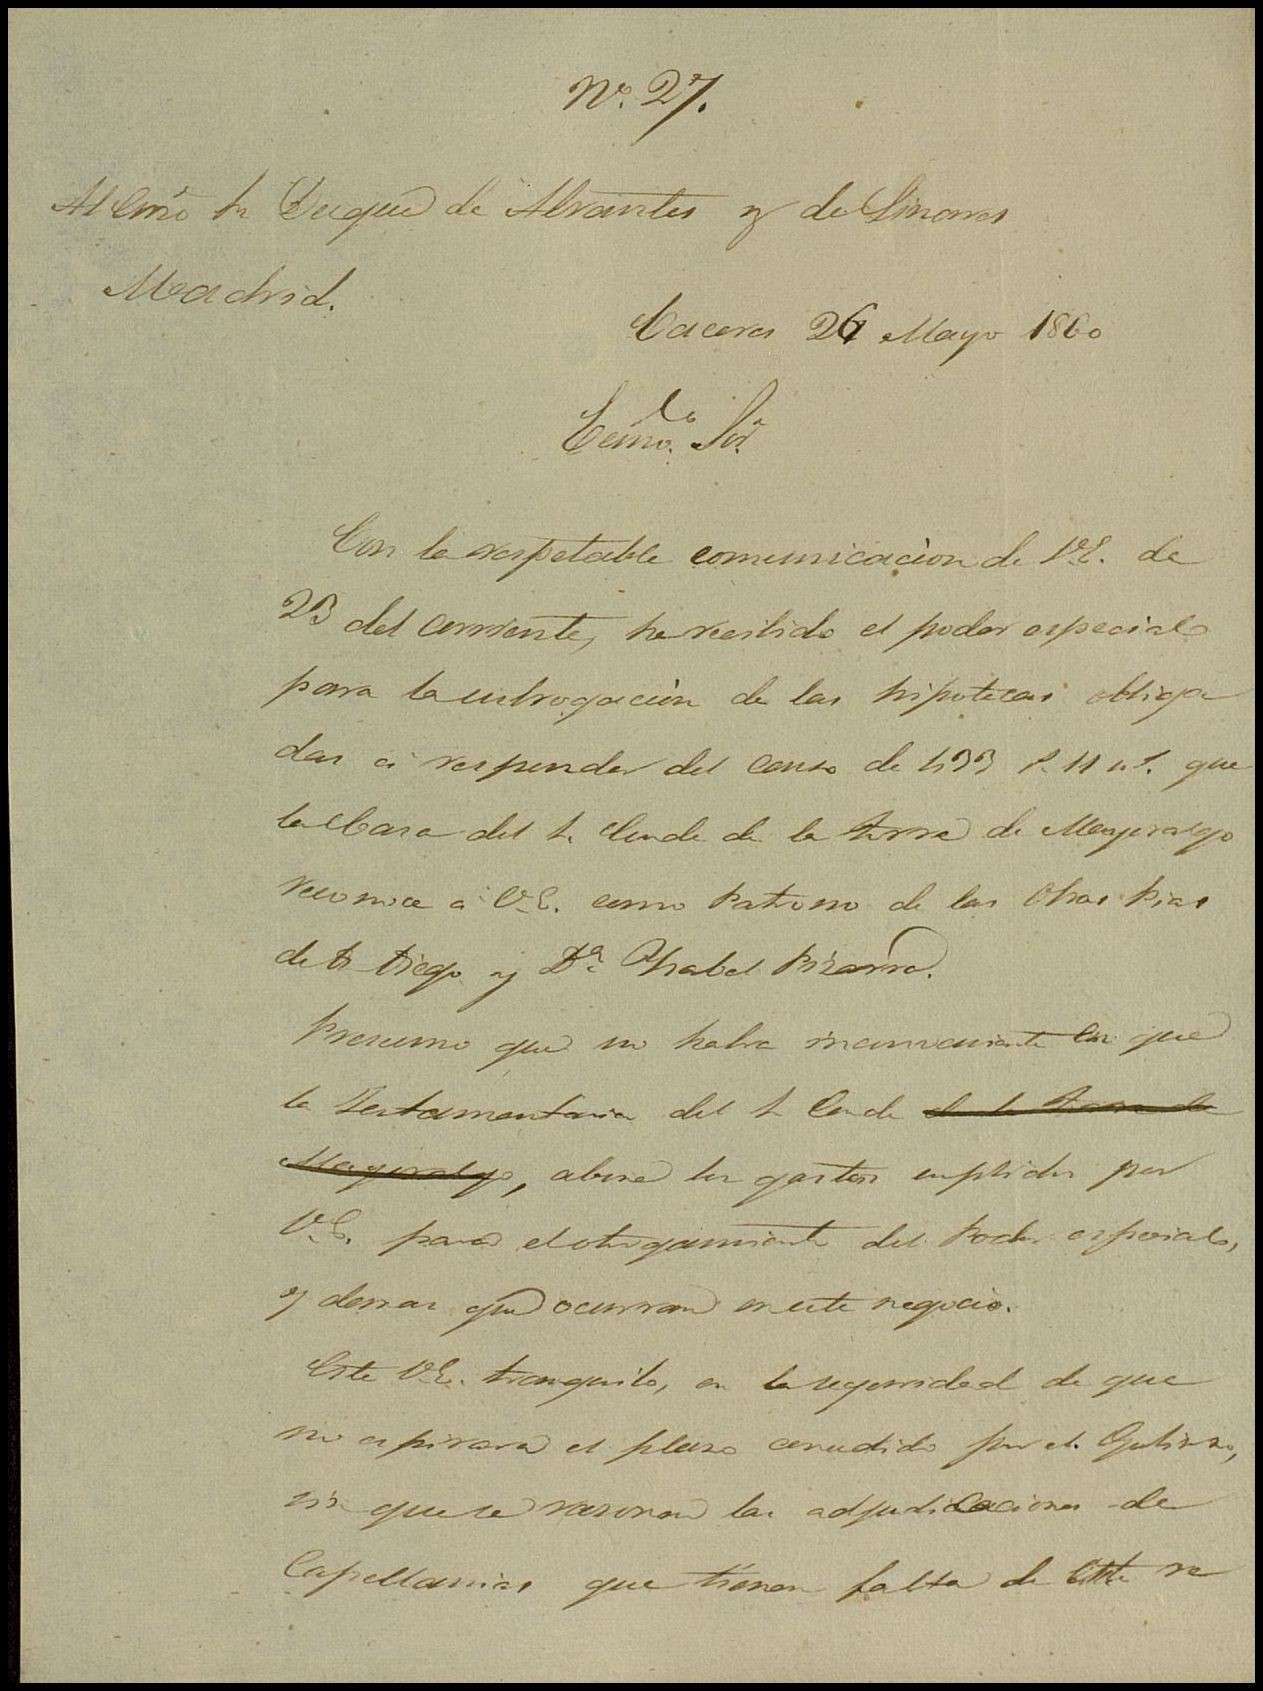 Nº. 27.
Al Exmo Sr Duque de Abrantes y de Linares
Madrid.
Caceres 26 Mayo 1860
Exmo. Sor.
Con la respetable comunicacion de V.E. de
23 del corriente, he recibido el poder especial
para la subrogación de las hipotecas obliga
das á responder del censo de 433 que
la Casa del Sr. Conde de la Torre de Mayoralgo
reconoce á V.E. como Patrono de las Obras Pias
de Dn Diego y Dª. Ysabel Pizarro.
Presumo que no habra inconveniente en que
la Testamentaria del Sr Conde de la Torre de
Mayoralgo, abone los gastos suplidos por
V.E. para el otorgamiento del Poder especial,
y demas que ocurran en este negocio.
Este V.E. tranquilo, en la seguridad de que
no espirara el plazo concedido por el Gobierno,
sin que se razonen las adjudicaciones de
Capellanias que tienen falta de este re